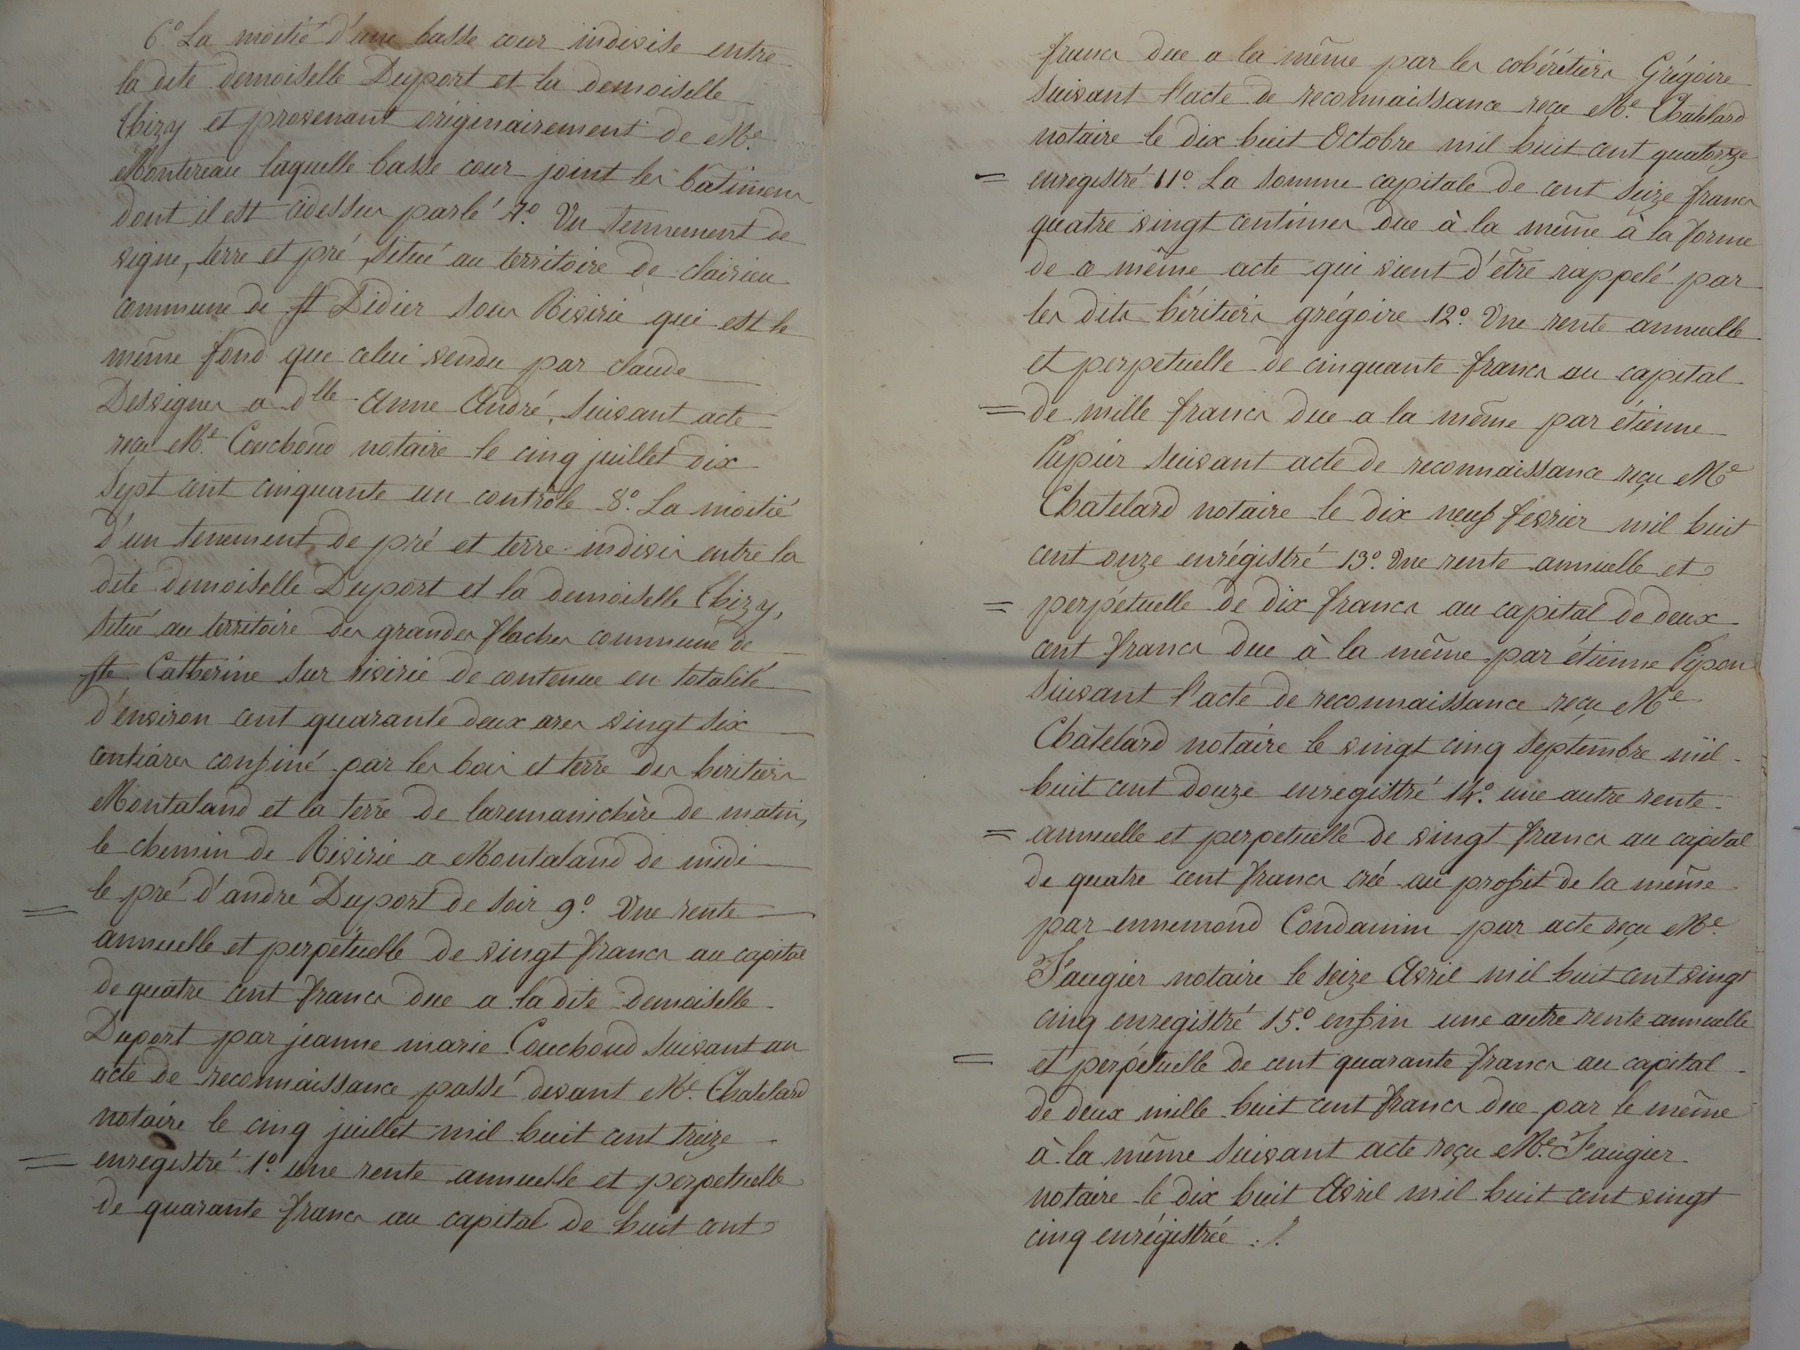 6.° La moitié d'une basse cour indivise entre
la dite demoiselle Duport et la demoiselle
Thizy et provenant originairement de Me.
Montereau laquelle basse cour joint les batimens
dont il est cidessus parlé 7.° Un tennement de
vigne, terre et pré, situé au territoire de clairieu
commune de St Didier sous Riverie qui est le
même fond que celui vendu par claude
Desvignes a dlle anne andré, suivant acte
reçu Me. Couchoud notaire le cinq juillet dix
sept cent cinquante un controlé 8.° La moitié
d'un tenement de pré et terre indivis entre la
dite demoiselle Duport et la demoiselle Thizy,
situé au territoire des grandes flaches commune de
Ste Catherine sur riverie de contenue en totalité
d'environ cent quarante deux ares vingt six
centiares confiné par les bois et terre des héritiers
Montaland et la terre de laremanichère de matin,
le chemin de Riverie a Montaland de midi
le pré d'andré Duport de soir 9.° Une rente
annuelle et perpétuelle de vingt francs au capital
de quatre cent francs due a ladite demoiselle
Duport par jeanne marie Couchoud suivant un
acte de reconnaissance passé devant Me. Chatelard
notaire le cinq juillet mil huit cent treize
enregistré 1.° une rente annuelle et perpetuelle
de quarante francs au capital de huit cent
francs due a la même par les cohéritiers Grégoire
suivant l'acte de reconnaissance reçu Me. Chatelard
notaire le dix huit Octobre mil huit cent quatorze
enregistré 11.° La somme capitale de cent seize francs
quatre vingt centimes due à la même à la forme
de ce même acte qui vient d'être rappelé par
les dits héritiers grégoire 12.° Une rente annuelle
et perpetuelle de cinquante francs au capital
de mille francs due a la même par étienne
Pupier suivant acte de reconnaissance reçu Me
Chatelard notaire le dix neuf fevrier mil huit
cent onze enrégistré 13.° Une rente annuelle et
perpétuelle de dix francs au capital de deux
cent francs due à la même par étienne Pipon
suivant l'acte de reconnaissance reçu Me
Châtelard notaire le vingt cinq septembre mil
huit cent douze enregistré 14.° une autre rente
annuelle et perpetuelle de vingt francs au capital
de quatre cent francs créé au profit de la même
par ennemond Condamin par acte reçu Me.
Faugier notaire le seize Avril mil huit cent vingt
cinq enregistré 15.° enfin une autre rente annuelle
et perpétuelle de cent quarante francs au capital
de deux mille huit cent francs due par le même
à la même suivant acte reçu Me. Faugier
notaire le dix huit Avril mil huit cent vingt
cinq enrégistrée ./.